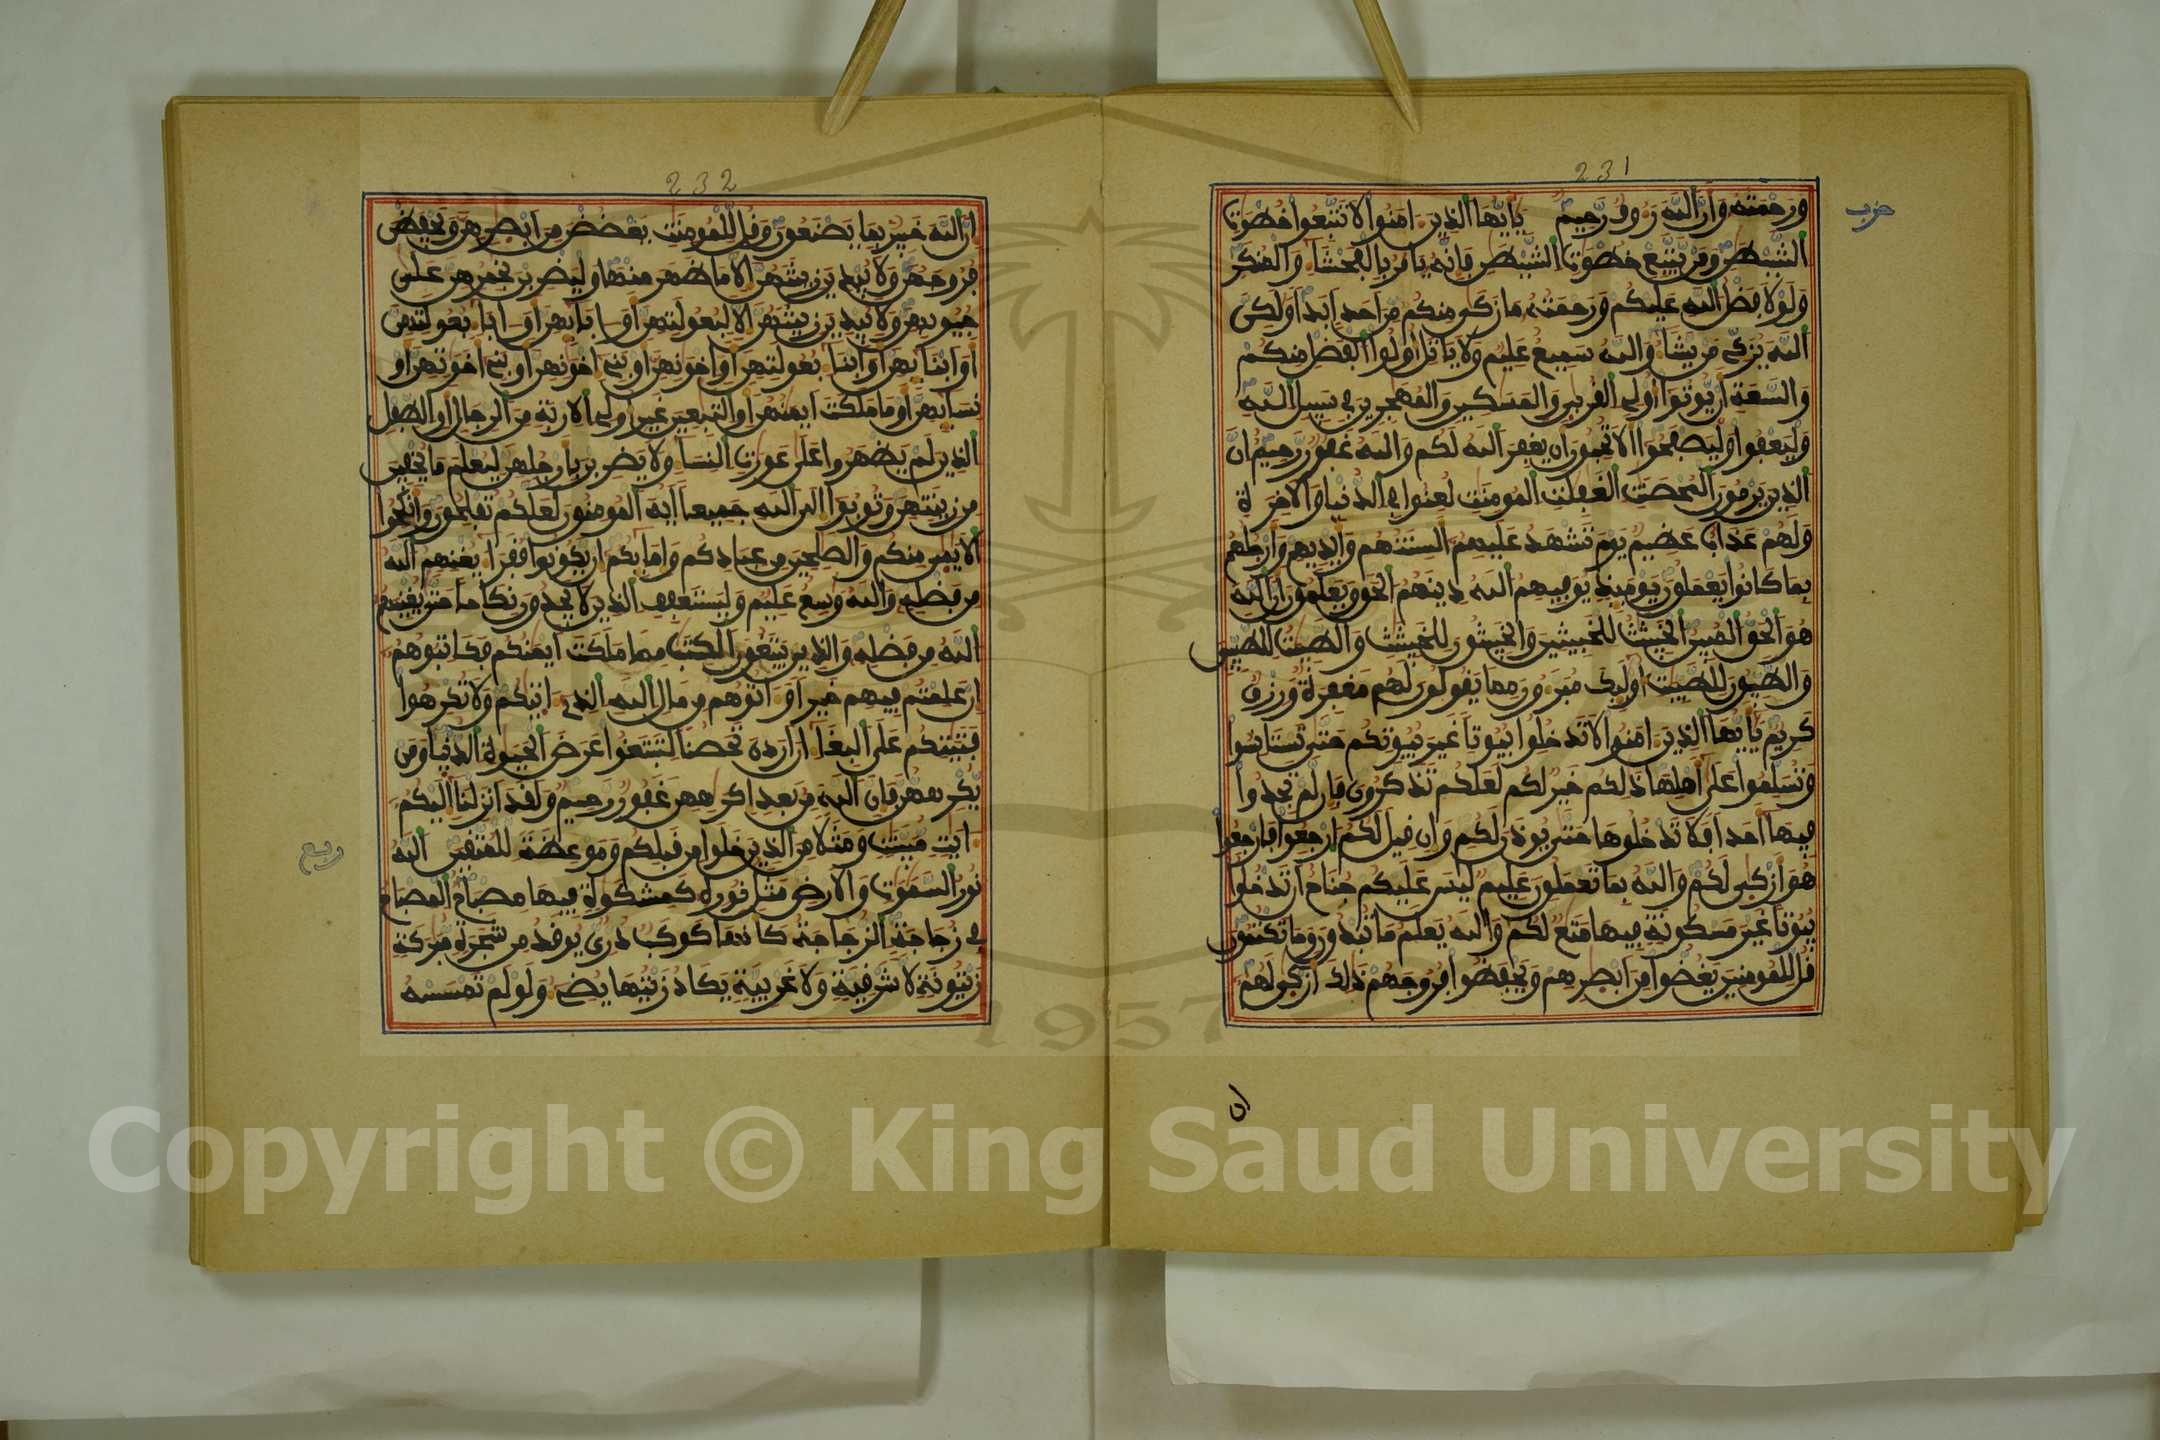 231
حزب
ورحمته وأن الله رءوف رحيم يأيها الذين ءامنوا لا تتبعوا خطوت
الشيطن ومن يتبع خطوت الشيطن فإنه يأمر بالفحشاء والمنكر
ولولا فضل الله عليكم ورحمته ما زكى منكم من أحد أبدا ولكن
الله يزكي من يشاء والله سميع عليم ولا ياتل أولوا الفضل منكم
والسعة أن يوتوا أولي القربى والمسكين والمهجرين في سبيل الله
وليعفوا وليصفحوا ألا تحبون أن يغفر الله لكم والله غفور رحيم إن
الذين يرمون المحصنت الغفلت المومنت لعنوا في الدنيا والاخرة
ولهم عذاب عظيم يوم تشهد عليهم ألسنتهم وأيديهم وأرجلهم
بما كانوا يعملون يومئذ يوفيهم الله دينهم الحق ويعلمون أن الله
هو الحق المبين الخبيثت للخبيثين والخبيثون للخبيثت والطيبت للطيبين
والطيبون للطيبت أولئك مبرءون مما يقولون لهم مغفرة ورزق
كريم يأيها الذين ءامنوا لا تدخلوا بيوتا غير بيوتكم حتى تستانسوا
وتسلموا على أهلها ذلكم خير لكم لعلكم تذكرون فإن لم تجدوا
فيها أحدا فلا تدخلوها حتى يوذن لكم وإن قيل لكم ارجعوا فارجعوا
هو أزكى لكم والله بما تعملون عليم ليس عليكم جناح أن تدخلوا
بيوتا غير مسكونة فيها متع لكم والله يعلم ما تبدون وما تكتمون
قل للمومنين يغضوا من أبصرهم ويحفظوا فروجهم ذلك أزكى لهم
ان
232
إن الله خبير بما يصنعون وقل للمومنت يغضضن من أبصرهن ويحفظن
فروجهن ولا يبدين زينتهن إلا ما ظهر منها وليضربن بخمرهن على
جيوبهن ولا يبدين زينتهن إلا لبعولتهن أو ءابائهن أو ءاباء بعولتهن
أو أبنائهن أو أبناء بعولتهن أو إخونهن أو بني إخونهن أو بني أخوتهن أو
نسائهن أو ما ملكت أيمنهن أو التبعين غير أولي الاربة من الرجال أو الطفل
الذين لم يظهروا على عورت النساء ولا يضربن بأرجلهن ليعلم ما يخفين
من زينتهن وتوبوا إلى الله جميعا أيه المومنون لعلكم تفلحون وأنكحوا
الايمى منكم والصلحين من عبادكم وإمائكم إن يكونوا فقراء يغنهم الله
من فضله والله وسع عليم وليستعفف الذين لا يجدون نكاحا حتى يغنيهم
الله من فضله والذين يبتغون الكتب مما ملكت أيمنكم فكاتبوهم
إن علمتم فيهم خيرا وءاتوهم من مال الله الذي ءاتيكم ولا تكرهوا
فتيتكم على البغاء ان اردن تحصنا لتبتغوا عرض الحيوة الدنيا ومن
يكرههن فإن الله من بعد إكرههن غفور رحيم ولقد أنزلنا إليكم
ءايت مبينت ومثلا من الذين خلوا من قبلكم وموعظة للمتقين الله
ربع
نور السموت والارض مثل نوره كمشكوة فيها مصباح المصباح
في زجاجة الزجاجة كأنها كوكب دري يوقد من شجرة مبركة
زيتونة لا شرقية ولا غربية يكاد زيتها يضيء ولو لم تمسسه
1957
Copyright © King Saud University